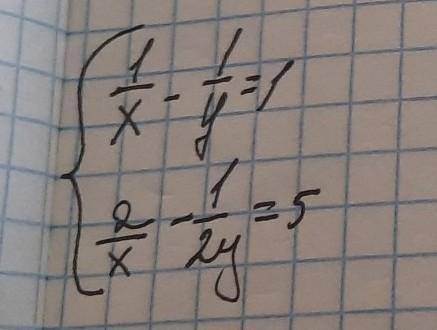 1/x - 1/y = 1
2/x - 1/2y = 5